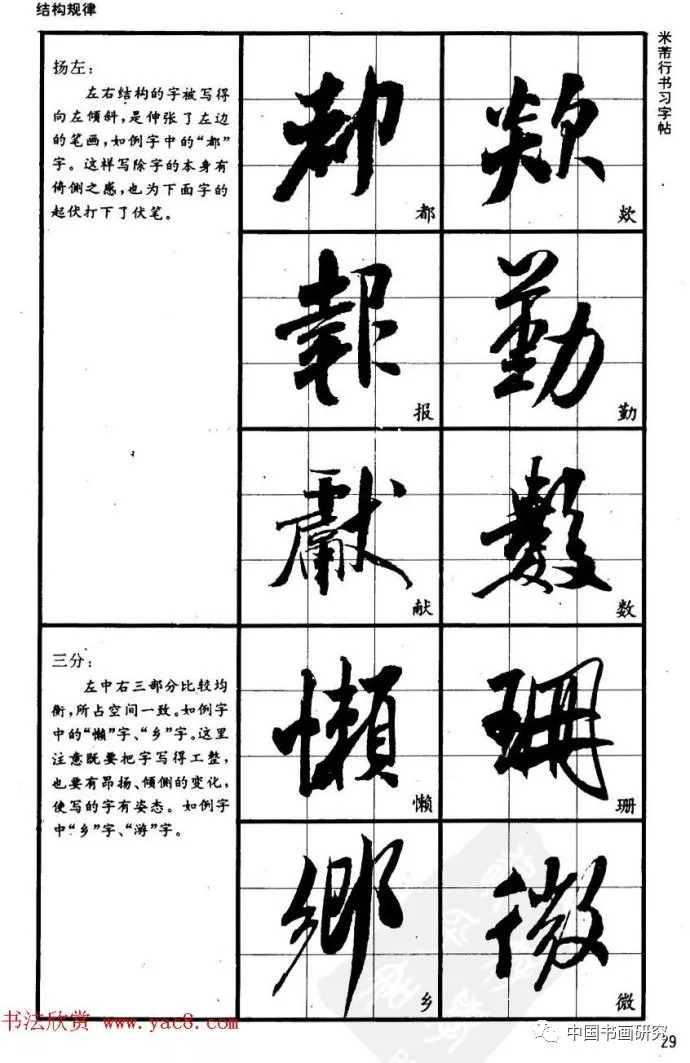 结构规律
米芾行书习字帖
扬左：
左右结构的字被写得
向左倾斜，是伸张了左边
的笔画，如例字中的“都”
字。这样写除字的本身有
倚侧之感，也为下面字的
起伏打下了伏笔。
都
欻
報
报
勤
勤
獻
献
數
数
三分：
左中右三部分比较均
衡，所占空间一致。如例字
中的“懒”字、“乡”字。这里
注意既要把字写得工整，
也要有昂扬、倾侧的变化，
使写的字有姿态。如例字
中“乡”字、“游”字。
懶
懒
珊
珊
鄉
乡
微
微
书法欣赏 www.yac8.com
中国书画研究
29